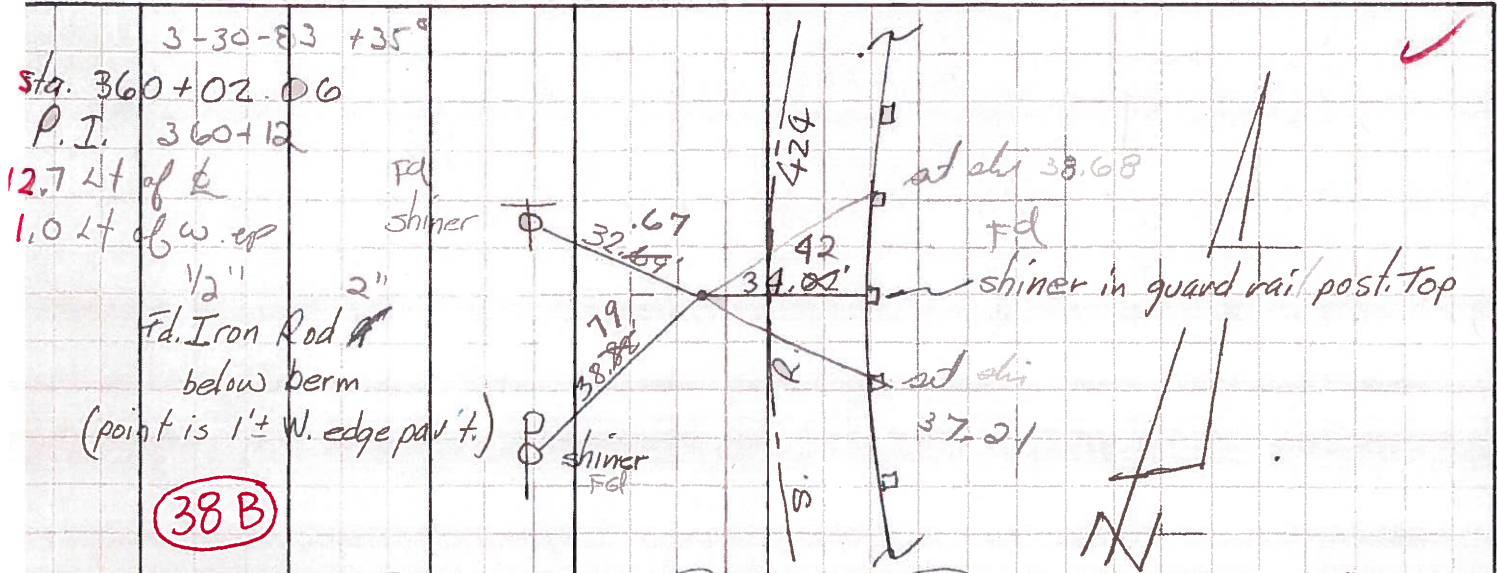 3-30-83 +35°
sta. 360+02.06
P.I. 360+12
12.7 Lt of ℄
1.0 Lt of w. ep
1/2" 2"
Fd. Iron Rod
below berm
(point is 1'± W. edge pav't.)
38 B
Fd
shiner
32.69'
.67
38.82'
79
P
shiner
Fd
34.02'
42
S. R. 424
set shi 38.68
Fd
shiner in guard rail post. Top
set shi
37.21
N